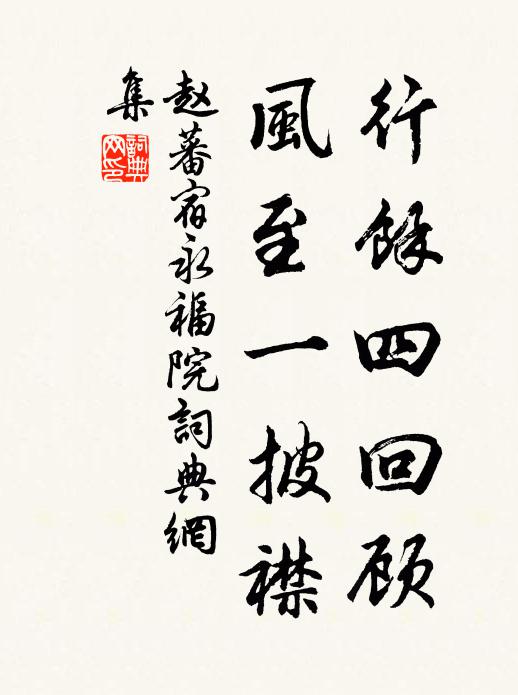 行餘四回顾
風至一披襟
赵蕃宿永福院詞典網
集
詞典
网印